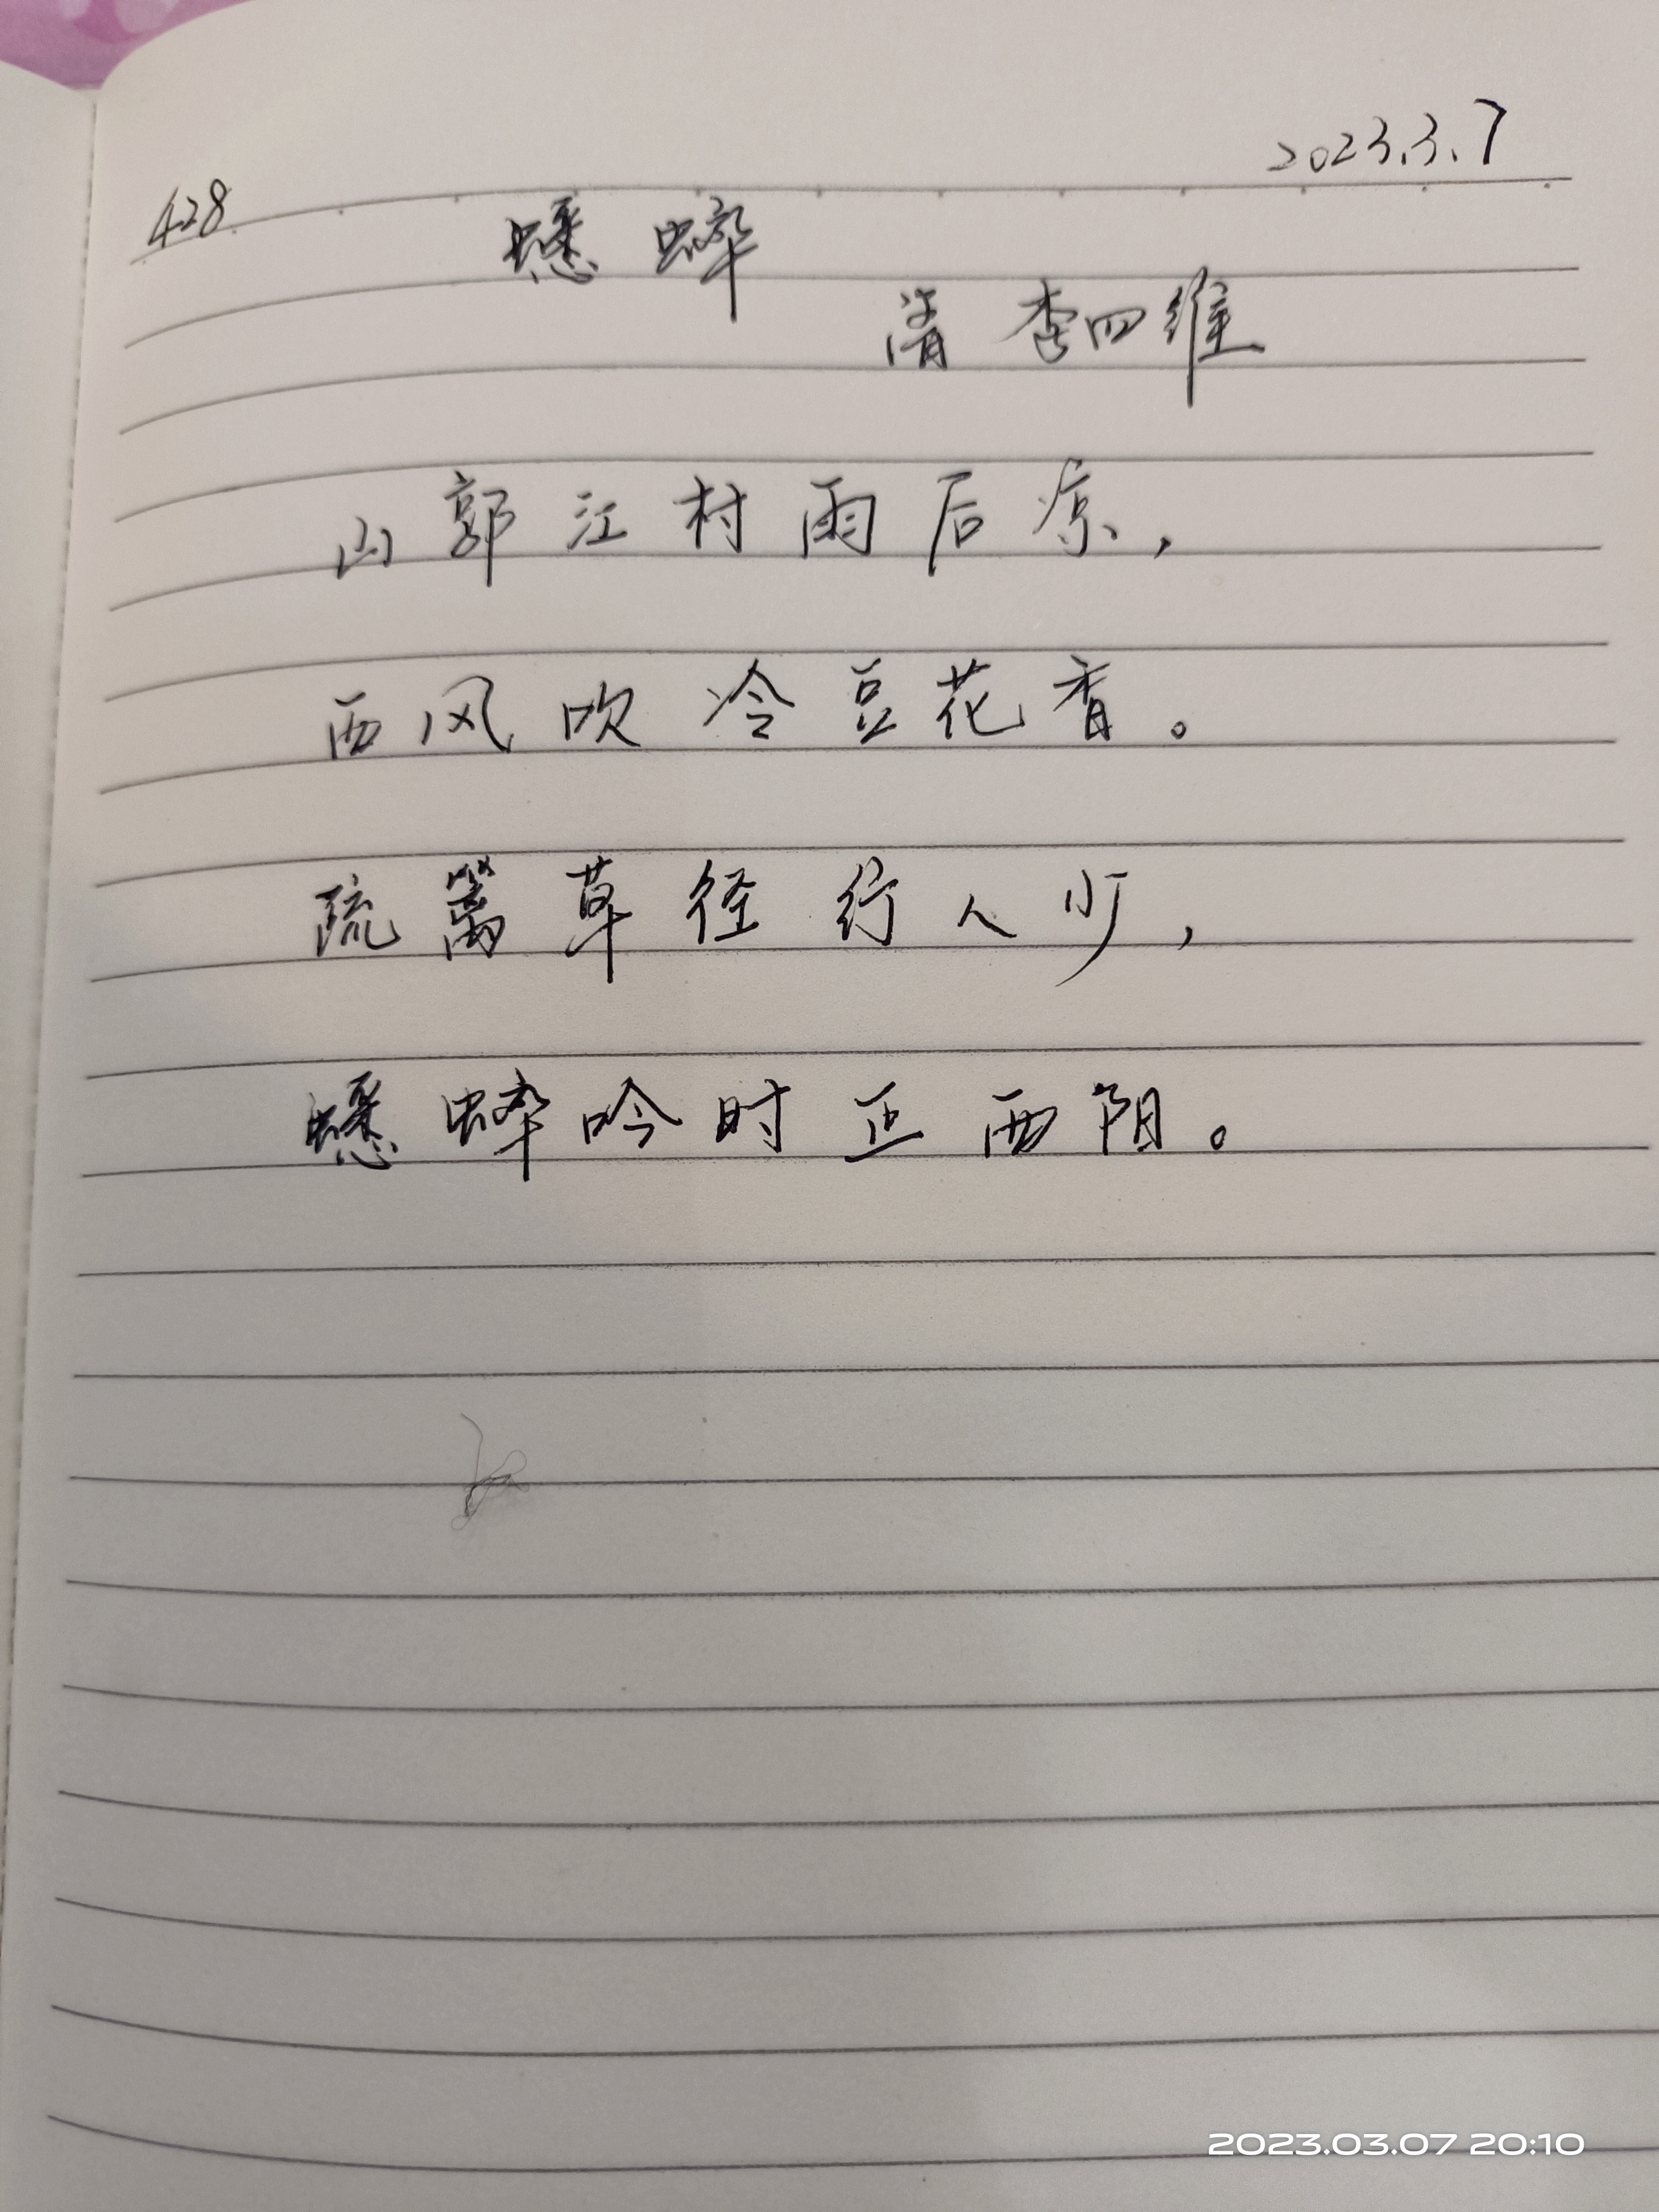 2023.3.7
428.
蟋蟀
清 李四维
山郭江村雨后凉,
西风吹冷豆花香。
疏篱草径行人少,
蟋蟀吟时正西阳。
2023.03.07 20:10